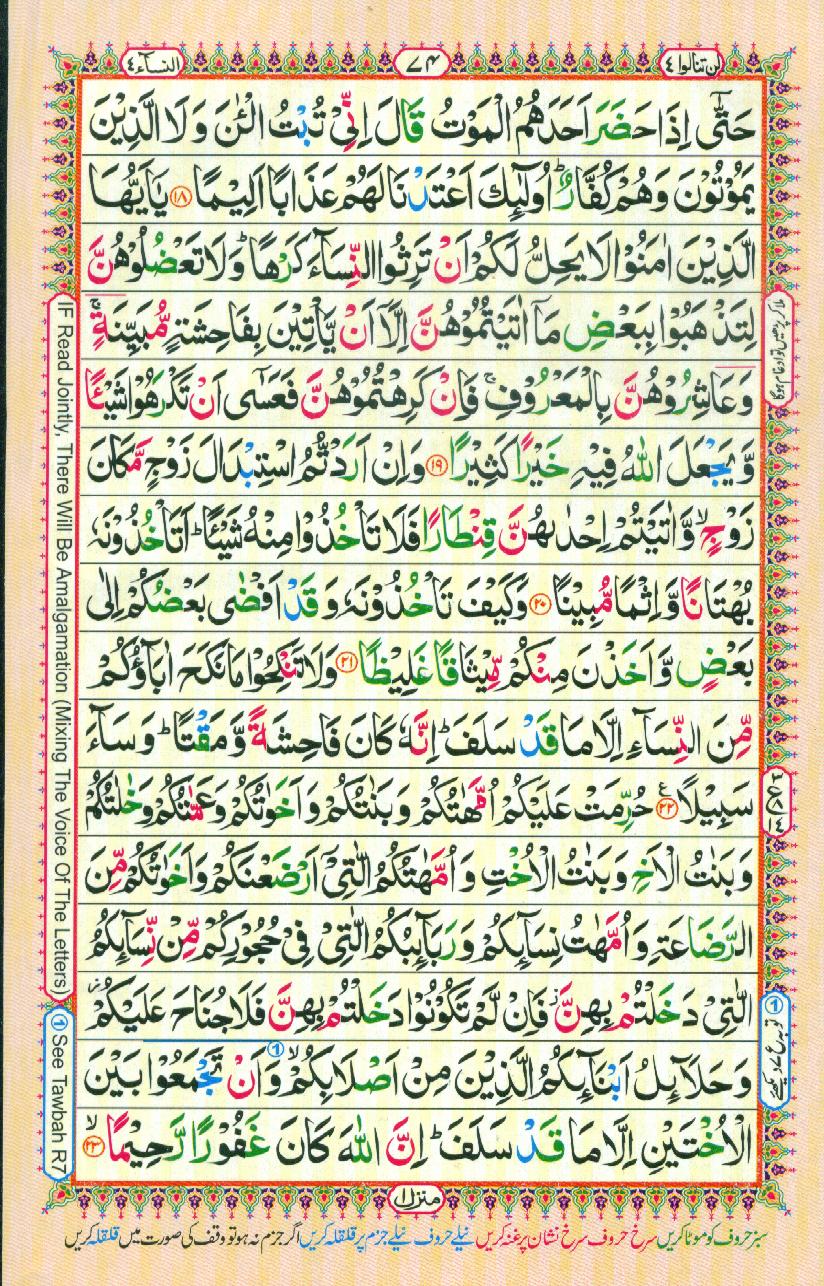 لن تنالوا ٤
٧٤
النساۤء ٤
حَتّٰۤى اِذَا حَضَرَ اَحَدَهُمُ الْمَوْتُ قَالَ اِنِّىْ تُبْتُ الْـٰٔنَ وَ لَا الَّذِيْنَ
يَمُوْتُوْنَ وَهُمْ كُفَّارٌ ؕ اُولٰٓئِكَ اَعْتَدْنَا لَهُمْ عَذَابًا اَلِيْمًا ﴿۱۸﴾ يٰۤاَيُّهَا
الَّذِيْنَ اٰمَنُوْا لَا يَحِلُّ لَكُمْ اَنْ تَرِثُوا النِّسَآءَ كَرْهًا ؕ وَ لَا تَعْضُلُوْهُنَّ
لِتَذْهَبُوْا بِبَعْضِ مَاۤ اٰتَيْتُمُوْهُنَّ اِلَّاۤ اَنْ يَّاْتِيْنَ بِفَاحِشَةٍ مُّبَيِّنَةٍ ۚ
وَ عَاشِرُوْهُنَّ بِالْمَعْرُوْفِ ۚ فَاِنْ كَرِهْتُمُوْهُنَّ فَعَسٰۤى اَنْ تَكْرَهُوْا شَيْـًٔا
وَّ يَجْعَلَ اللّٰهُ فِيْهِ خَيْرًا كَثِيْرًا ﴿۱۹﴾ وَ اِنْ اَرَدْتُّمُ اسْتِبْدَالَ زَوْجٍ مَّكَانَ
زَوْجٍ ۙ وَّ اٰتَيْتُمْ اِحْدٰىهُنَّ قِنْطَارًا فَلَا تَاْخُذُوْا مِنْهُ شَيْـًٔا ؕ اَتَاْخُذُوْنَهٗ
بُهْتَانًا وَّ اِثْمًا مُّبِيْنًا ﴿۲۰﴾ وَ كَيْفَ تَاْخُذُوْنَهٗ وَ قَدْ اَفْضٰى بَعْضُكُمْ اِلٰى
بَعْضٍ وَّ اَخَذْنَ مِنْكُمْ مِّيْثَاقًا غَلِيْظًا ﴿۲۱﴾ وَ لَا تَنْكِحُوْا مَا نَكَحَ اٰبَآؤُكُمْ
مِّنَ النِّسَآءِ اِلَّا مَا قَدْ سَلَفَ ؕ اِنَّهٗ كَانَ فَاحِشَةً وَّ مَقْتًا ؕ وَ سَآءَ
سَبِيْلًا ﴿۲۲﴾ ع حُرِّمَتْ عَلَيْكُمْ اُمَّهٰتُكُمْ وَ بَنٰتُكُمْ وَ اَخَوٰتُكُمْ وَ عَمّٰتُكُمْ وَ خٰلٰتُكُمْ
وَ بَنٰتُ الْاَخِ وَ بَنٰتُ الْاُخْتِ وَ اُمَّهٰتُكُمُ الّٰتِىْۤ اَرْضَعْنَكُمْ وَ اَخَوٰتُكُمْ مِّنَ
الرَّضَاعَةِ وَ اُمَّهٰتُ نِسَآئِكُمْ وَ رَبَآئِبُكُمُ الّٰتِىْ فِىْ حُجُوْرِكُمْ مِّنْ نِّسَآئِكُمُ
الّٰتِىْ دَخَلْتُمْ بِهِنَّ ۫ فَاِنْ لَّمْ تَكُوْنُوْا دَخَلْتُمْ بِهِنَّ فَلَا جُنَاحَ عَلَيْكُمْ ۫
وَ حَلَآئِلُ اَبْنَآئِكُمُ الَّذِيْنَ مِنْ اَصْلَابِكُمْ ۙ ① وَ اَنْ تَجْمَعُوْا بَيْنَ
الْاُخْتَيْنِ اِلَّا مَا قَدْ سَلَفَ ؕ اِنَّ اللّٰهَ كَانَ غَفُوْرًا رَّحِيْمًا ﴿۲۳﴾ ۙ
منزل ۱
سبز حروف کو موٹا کریں سرخ حروف سرخ نشان پر غنہ کریں نیلے حروف نیلے جزم پر قلقلہ کریں اگر جزم نہ ہو تو وقف کی صورت میں قلقلہ کریں
IF Read Jointly, There Will Be Amalgamation (Mixing The Voice Of The Letters)
① See Tawbah R7